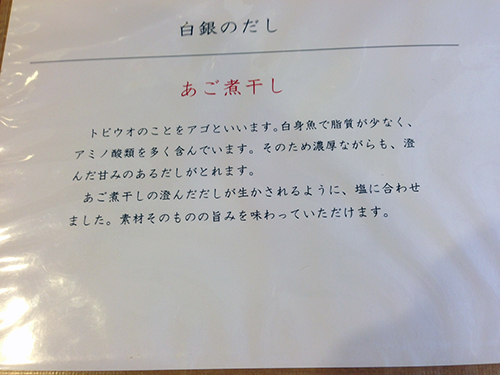 白銀のだし
あご煮干し
トビウオのことをアゴといいます。白身魚で脂質が少なく、
アミノ酸類を多く含んでいます。そのため濃厚ながらも、澄
んだ甘みのあるだしがとれます。
あご煮干しの澄んだだしが生かされるように、塩に合わせ
ました。素材そのものの旨みを味わっていただけます。